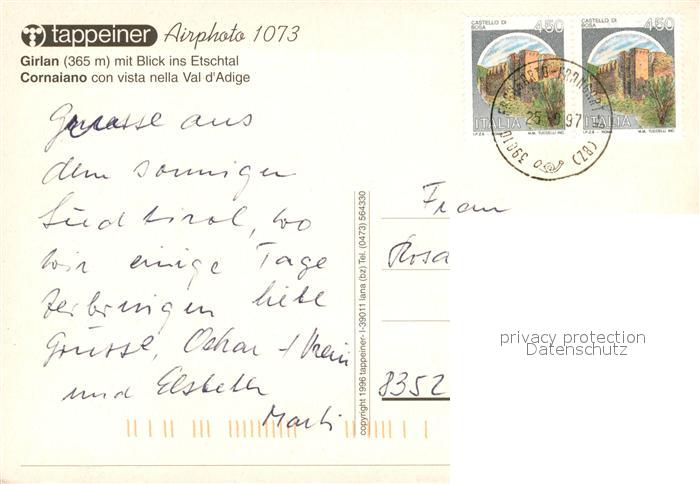 tappeiner Airphoto 1073
Girlan (365 m) mit Blick ins Etschtal
Cornaiano con vista nella Val d'Adige
CASTELLO DI BOSA 450
ITALIA
I.P.Z.S. - ROMA M.M. TUCCELLI INC.
CASTELLO DI BOSA 450
ITALIA
I.P.Z.S. - ROMA M.M. TUCCELLI INC.
39010 FRANGARTO-FRANGART (BZ)
25 97
Gruesse aus
dem sonnigen
Südtirol, wo
wir einige Tage
verbringen liebe
Grüsse, Oskar +
und Elsbeth
Marti
copyright 1996 tappeiner- I-39011 lana (bz) Tel. (0473) 564330
Frau
Rosa
8352
privacy protection
Datenschutz